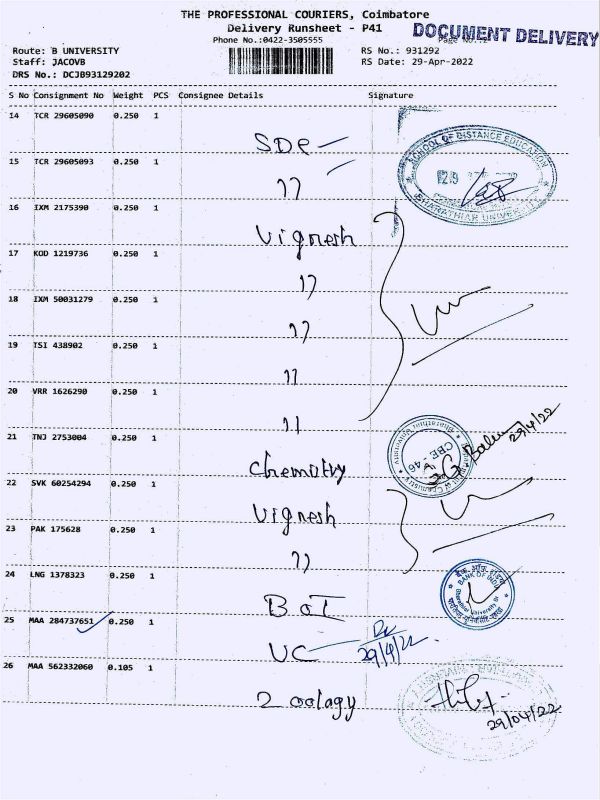 THE PROFESSIONAL COURIERS, Coimbatore
Delivery Runsheet - P41
DOCUMENT DELIVERY
Phone No.:0422-3505555
Page No.:2
Route: B UNIVERSITY
RS No.: 931292
Staff: JACOVB
RS Date: 29-Apr-2022
DRS No.: DCJB93129202
S No Consignment No Weight PCS Consignee Details Signature
14 TCR 29605090 0.250 1
SDE
SCHOOL OF DISTANCE EDUCATION
BHARATHIAR UNIVERSITY
15 TCR 29605093 0.250 1
17
16 IXM 2175390 0.250 1
Vignesh
17 KOD 1219736 0.250 1
17
18 IXM 50031279 0.250 1
17
19 TSI 438902 0.250 1
11
20 VRR 1626290 0.250 1
11
21 TNJ 2753004 0.250 1
Chemistry
CBE - 46
29/4/22
22 SVK 60254294 0.250 1
Vignesh
23 PAK 175628 0.250 1
17
24 LNG 1378323 0.250 1
BOI
BANK OF INDIA
25 MAA 284737651 0.250 1
UC
29/4/22
26 MAA 562332060 0.105 1
Zoology
29/04/22